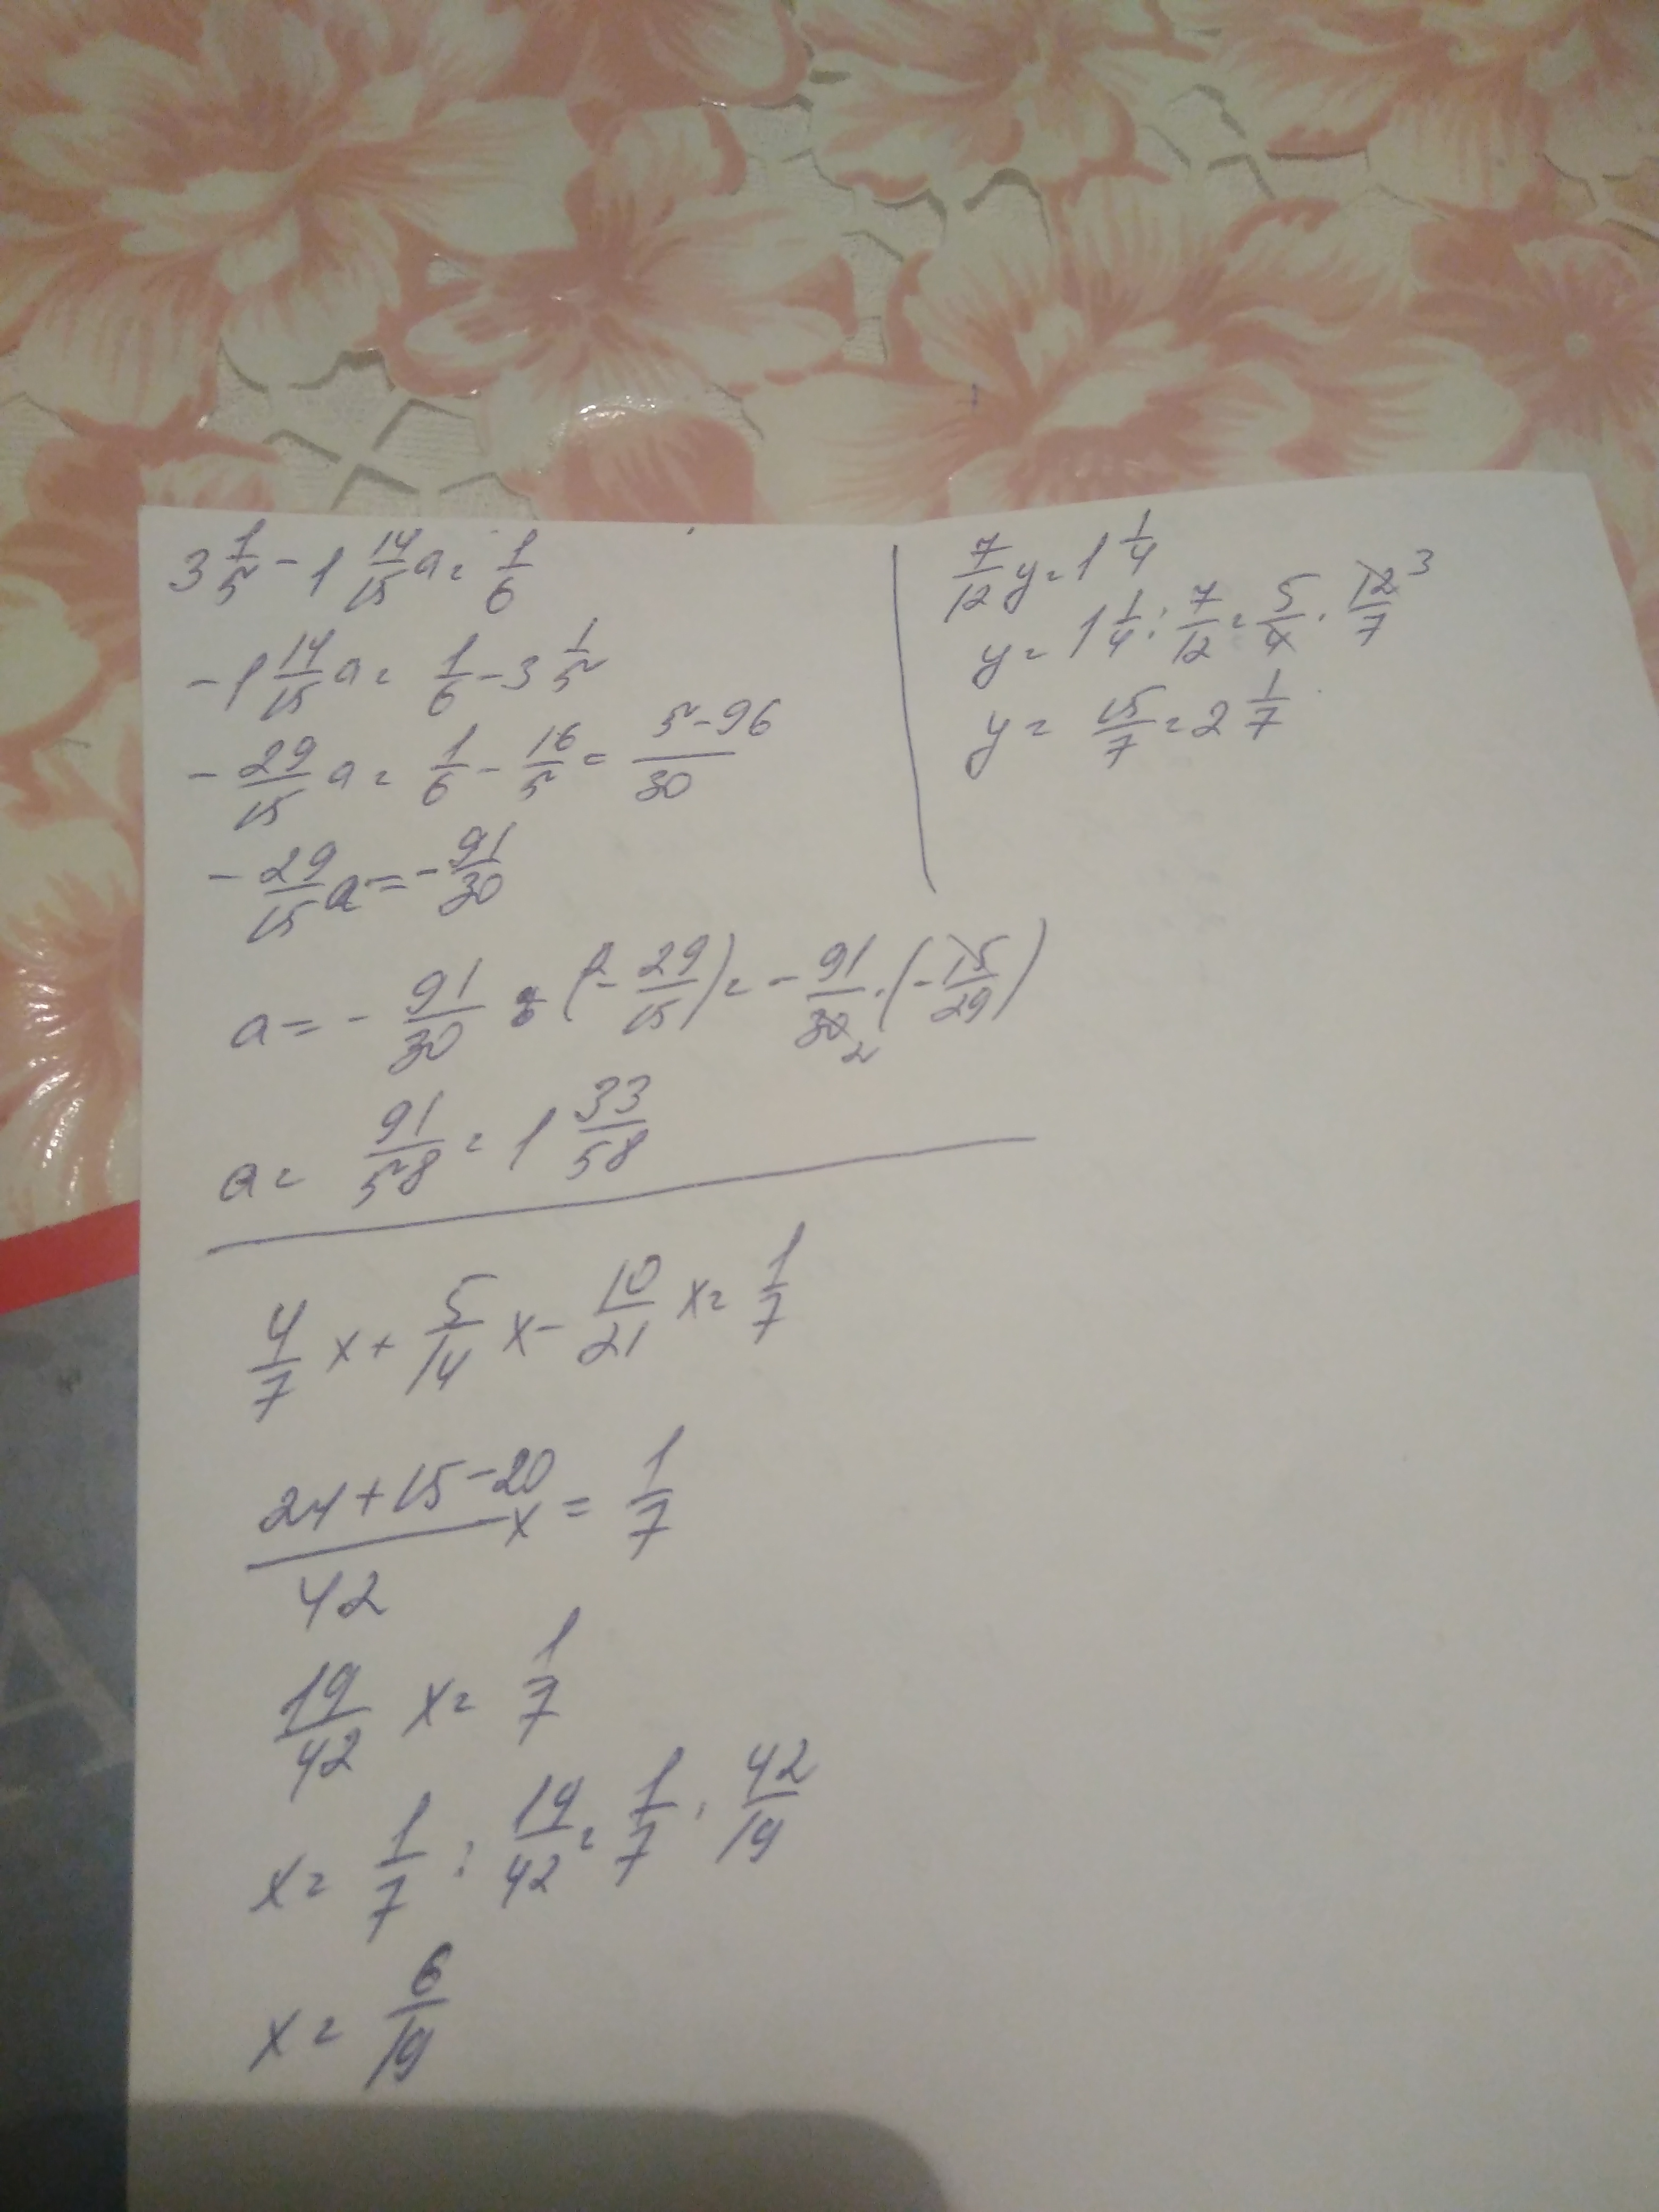 3 1/5 - 1 14/15 a = 1/6
- 1 14/15 a = 1/6 - 3 1/5
- 29/15 a = 1/6 - 16/5 = (5-96)/30
- 29/15 a = - 91/30
a = - 91/30 : (- 29/15) = - 91/30 2 · (- 15/29)
a = 91/58 = 1 33/58
7/12 y = 1 1/4
y = 1 1/4 : 7/12 = 5/4 · 12/7 3
y = 15/7 = 2 1/7
4/7 x + 5/14 x - 10/21 x = 1/7
(24+15-20)/42 x = 1/7
19/42 x = 1/7
x = 1/7 : 19/42 = 1/7 · 42/19
x = 6/19
A